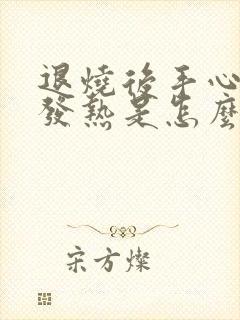 退燒後手心
發熱是怎麼
宋方燦